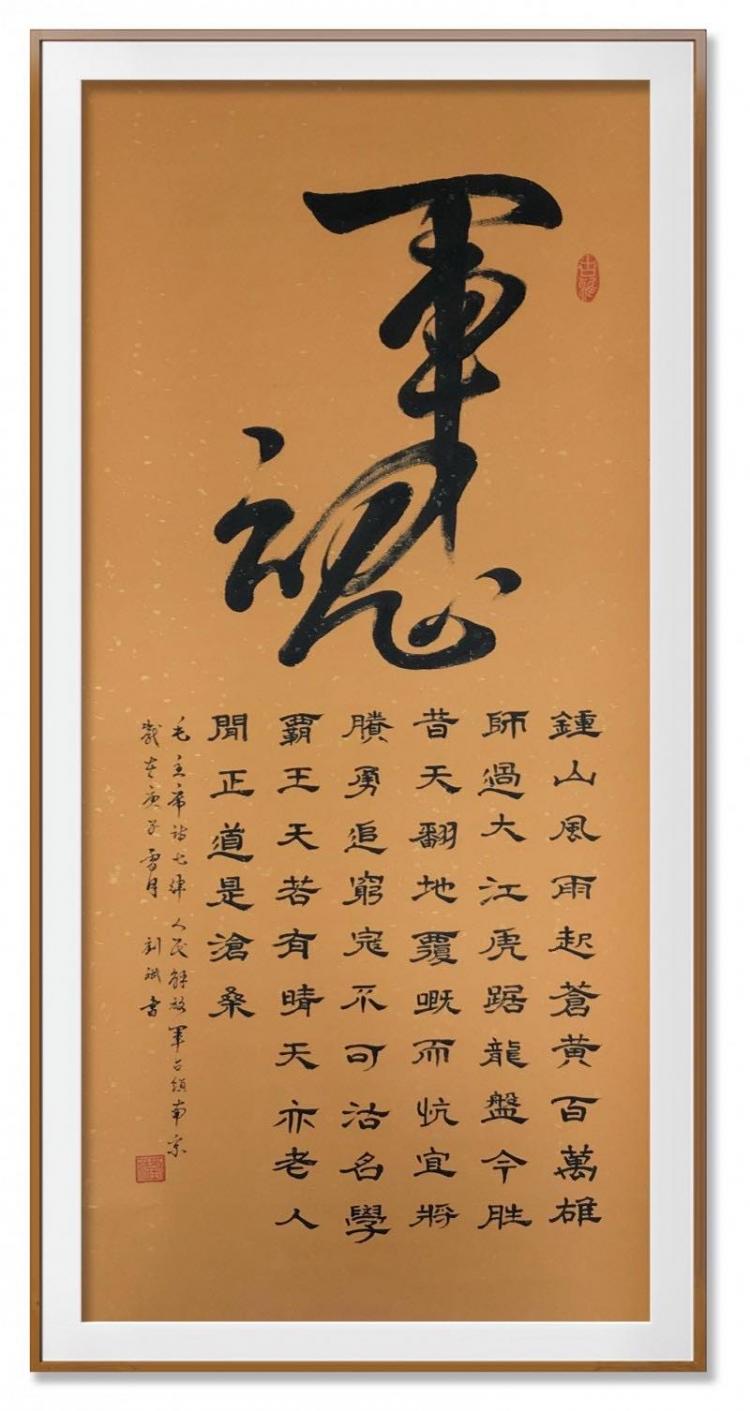 軍魂
鍾山風雨起蒼黃百萬雄
師過大江虎踞龍盤今胜
昔天翻地覆嘅而忼宜將
賸勇追窮寇不可沽名學
霸王天若有晴天亦老人
間正道是滄桑
毛主席诗七律 人民解放軍占領南京
歲在庚子雪月 劉斌書